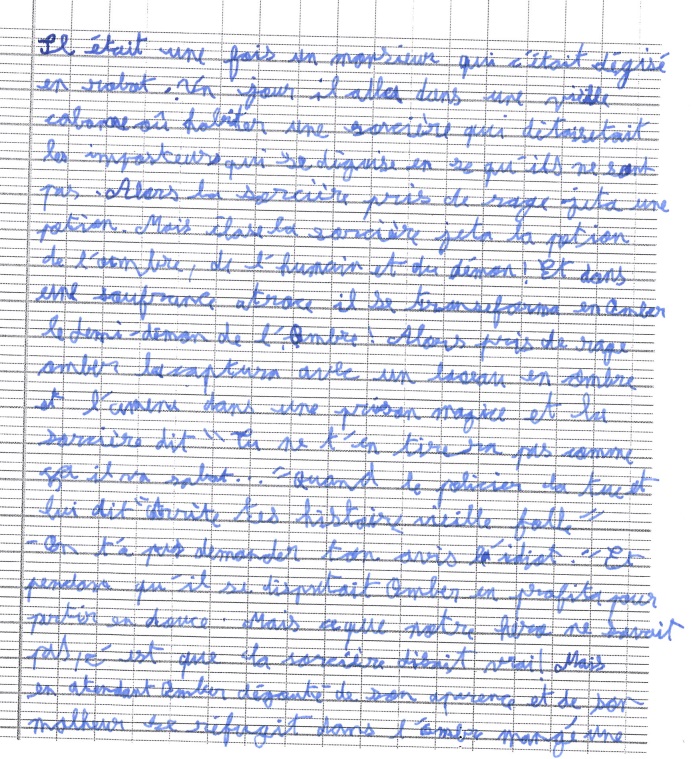 Il était une fois un monsieur qui c'était dégisé
en robot. Un jour il alla dans une vielle
cabane où habiter une sorcière qui détassetait
les imposteurs qui se déguise en se qu'ils ne sont
pas. Alors la sorcière pris de rage jeta une
potion. Mais la sorcière jeta la potion
de l'ombre, de l'humain et du démon! Et dans
une soufrance atroce il se transforma en Amber
le demi-démon de l'Ombre! Alors pris de rage
amber la captura avec un laseau en ombre
et l'amena dans une prison magice et la
sorcière dit "Tu ne t'en tirera pas comme
ça il va sabat..." quand le policier la tue et
lui dit "arrête tes histoire vieille folle"
-On t'a pas demander ton avis l'idiot." Et
pendans qu'il se disputait Amber en profita pour
partir en douce. Mais ceque notre héro ne savait
pas, c'est que la sorcière disait vrai! Mais
en atendant Amber dégouté de son aparence et de son
malheur se réfugit dans l'ombre mangé une